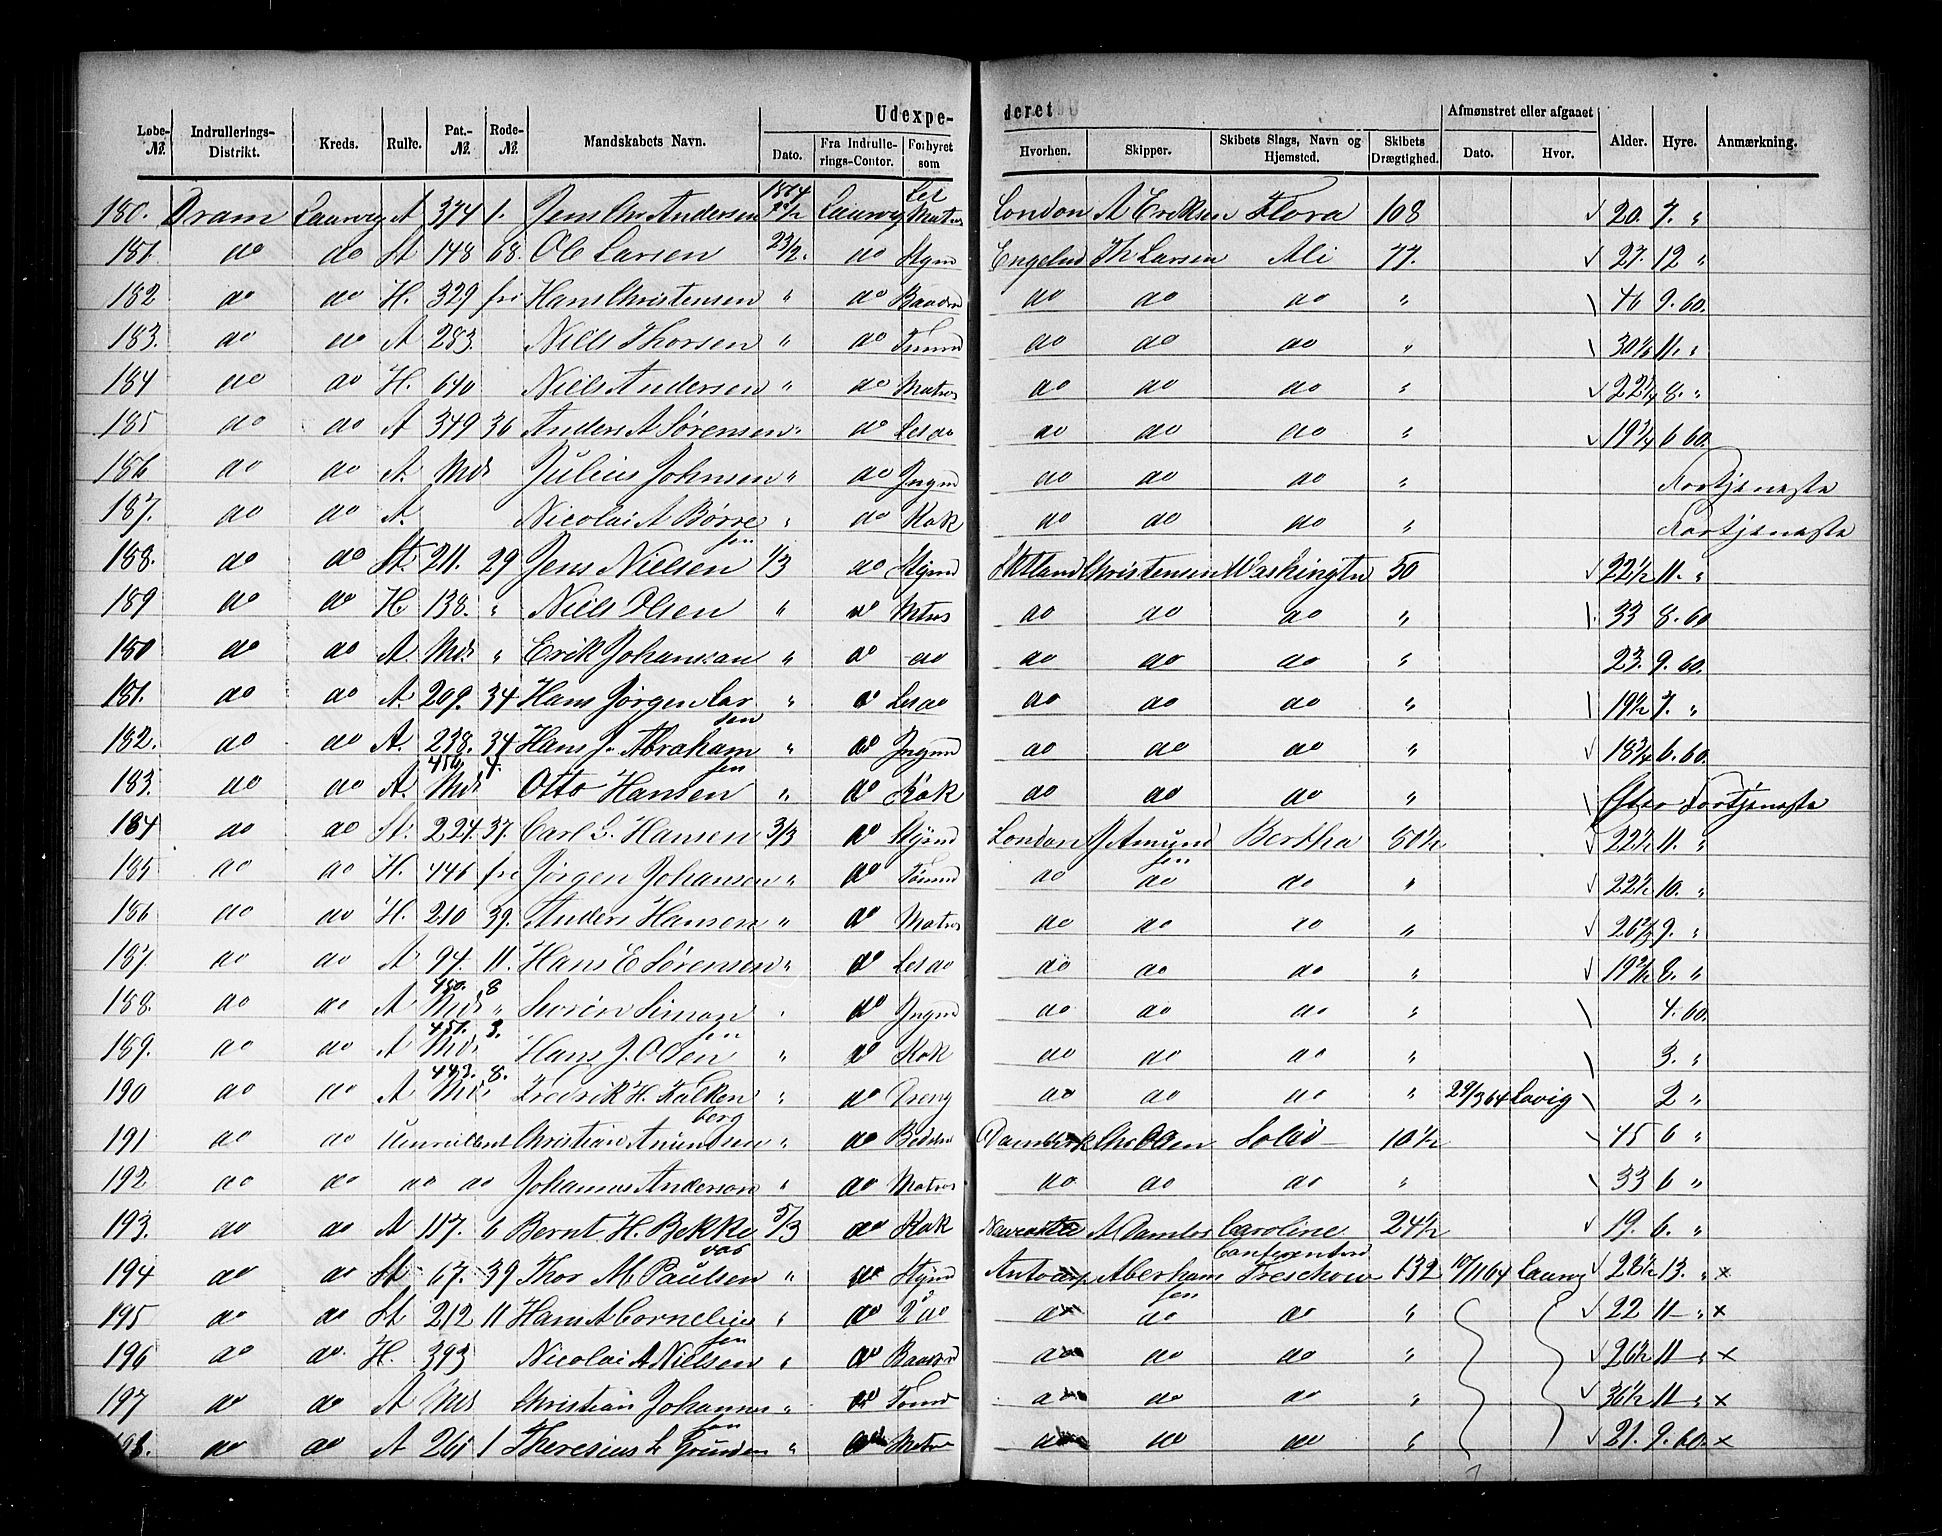 Udexpe-
deret
Løbe-№.
Indrullerings-Distrikt.
Kreds.
Rulle.
Pat.-№.
Rode-№.
Mandskabets Navn.
Dato.
Fra Indrullerings-Contor.
Forhyret som
Hvorhen.
Skipper.
Skibets Slags, Navn og Hjemsted.
Skibets Drægtighed.
Afmønstret eller afgaaet
Dato.
Hvor.
Alder.
Hyre.
Anmærkning.
180. Dram Laurvig A 374 1. Jens Chr Andersen 1864 Laurvig Let Matros London A Eriksen Flora 108 20. 7. "
181. do do St 148 68. Ole Larsen 23/2. do Stym Th Larsen Ali 77. 27. 12 "
182 do do H. 329 fri Hans Christensen " do do do do " 46 9. 60.
183. do do A 283. Niels Thorsen " do do do do " 11. "
184 do do H. 640 Niels Andersen " do Matros do do do " 22 1/4 8. "
185 do do A 349 36 Anders A Sørensen " do Let do do do do " 19 3/4 6 60.
186 do do A. Mds Julius Johnsen " do Jngmd do do do " Fortjeneste
187. do do A. Nicolai A Børresen " do Kok do do do " Fortjeneste
188. do do St. 211. 29 Jens Nielsen 1/3 do Stymd Christensen Washingtn 50 22 1/2 11. "
189 do do H. 138. " Niels Olsen " do Mtros do do do " 33 8. 60
180 do do A. Mds " Erik Johansan " do do do do do " 23. 9. 60.
181. do do A. 209. 34 Hans Jørgen Larsen " do Let do do do do " 19 1/2 7. "
182. do do A. 238. 34 Hans J. Abrahamsen " do Jngmd do do do " 18 3/4 6. 60.
183. do do A. 456 4. Mds Otto Hansen " do Kok do do do " Efter Fortjeneste
184 do do St. 224. 37. Carl G. Hansen 3/3 do Stymd London J Amundsen Bertha 80 1/2 22 1/2 11. "
185 do do H. 446 fri Jørgen Johansen " do Tømd do do do " 22 1/2 10. "
186 do do H. 210 39. Anders Hansen " do Matros do do do " 9. "
187. do do A 94. 11. Hans E Sørensen " do Let do do do do " 8. "
188. do do A 450. 8 Mds " Søren Simonsen " do Jngmd do do do " 4. 60.
189. do do A 451. 3. Mds Hans J. Olsen " do Kok do do do " 3. "
190 do do A 443. 8. Mds Fredrik H. Falkenberg " do Dreng do do do " 29/3 64 Lavig 2 "
191 do do Christian Amundsen " do Chr Olsen Solid 10 1/2 45 6 "
192 do do do do Johannes Anderson " do Matros do do do " 33 6 "
193. do do A 117. 6 Bernt H. Bekkevar 5/3 do Kok Caroline 24 1/2 19. 6. "
194 do do St. 67. 39 Thor M Paulsen " do Stymd Aberhamsen Conferentsrd Treschow 132 64 Laurvig 28 1/2 13. " x
195 do do St 212 11 Hans A Corneliussen " do 2 do do do do " 22 11 " x
196 do do H. 393 Nicolai A Nielsen " do do do do " 26 1/2 11 " x
197 do do A Mds Christian Johannessen " do Tømd do do do " 36 1/2 11 " x
198. do do A 261 1 Theresius L Grunden " do Matros do do do " 21. 9. 60. x